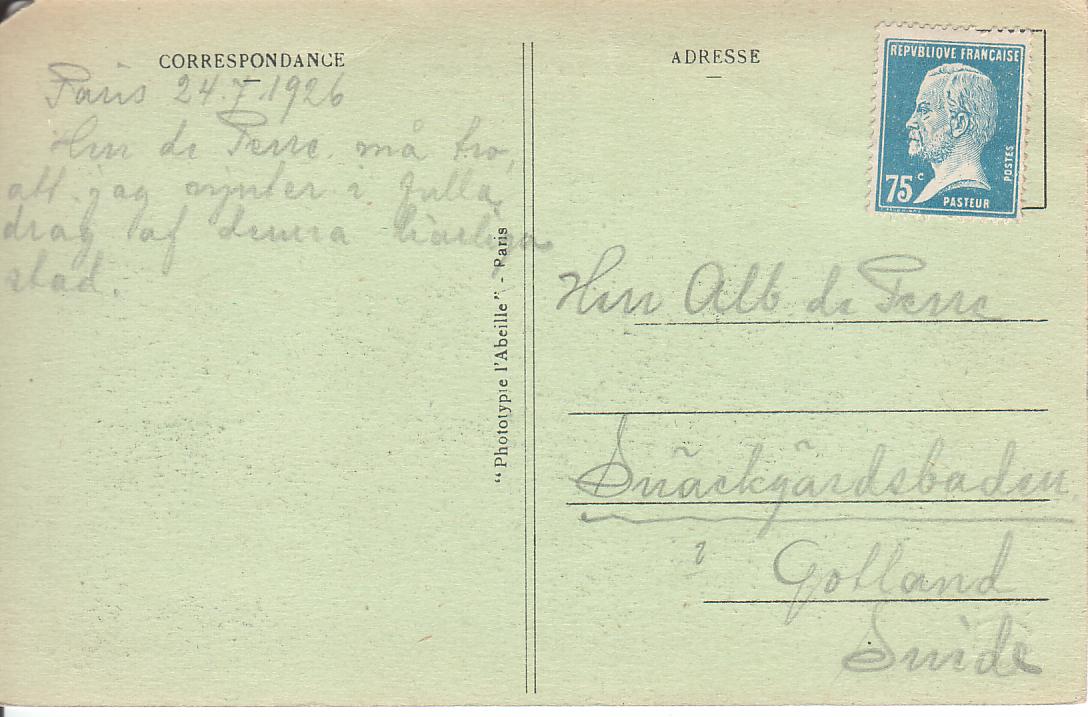 CORRESPONDANCE
Paris 24.7.1926
Herr de Perre må tro,
att jag njuter i fulla
drag af denna härliga
stad.
"Phototypie l'Abeille" - Paris
ADRESSE
REPVBLIQUE FRANÇAISE
POSTES
75 c
PASTEUR
Herr Alb. de Perre
Snäckgärdsbaden
Gotland
Suède